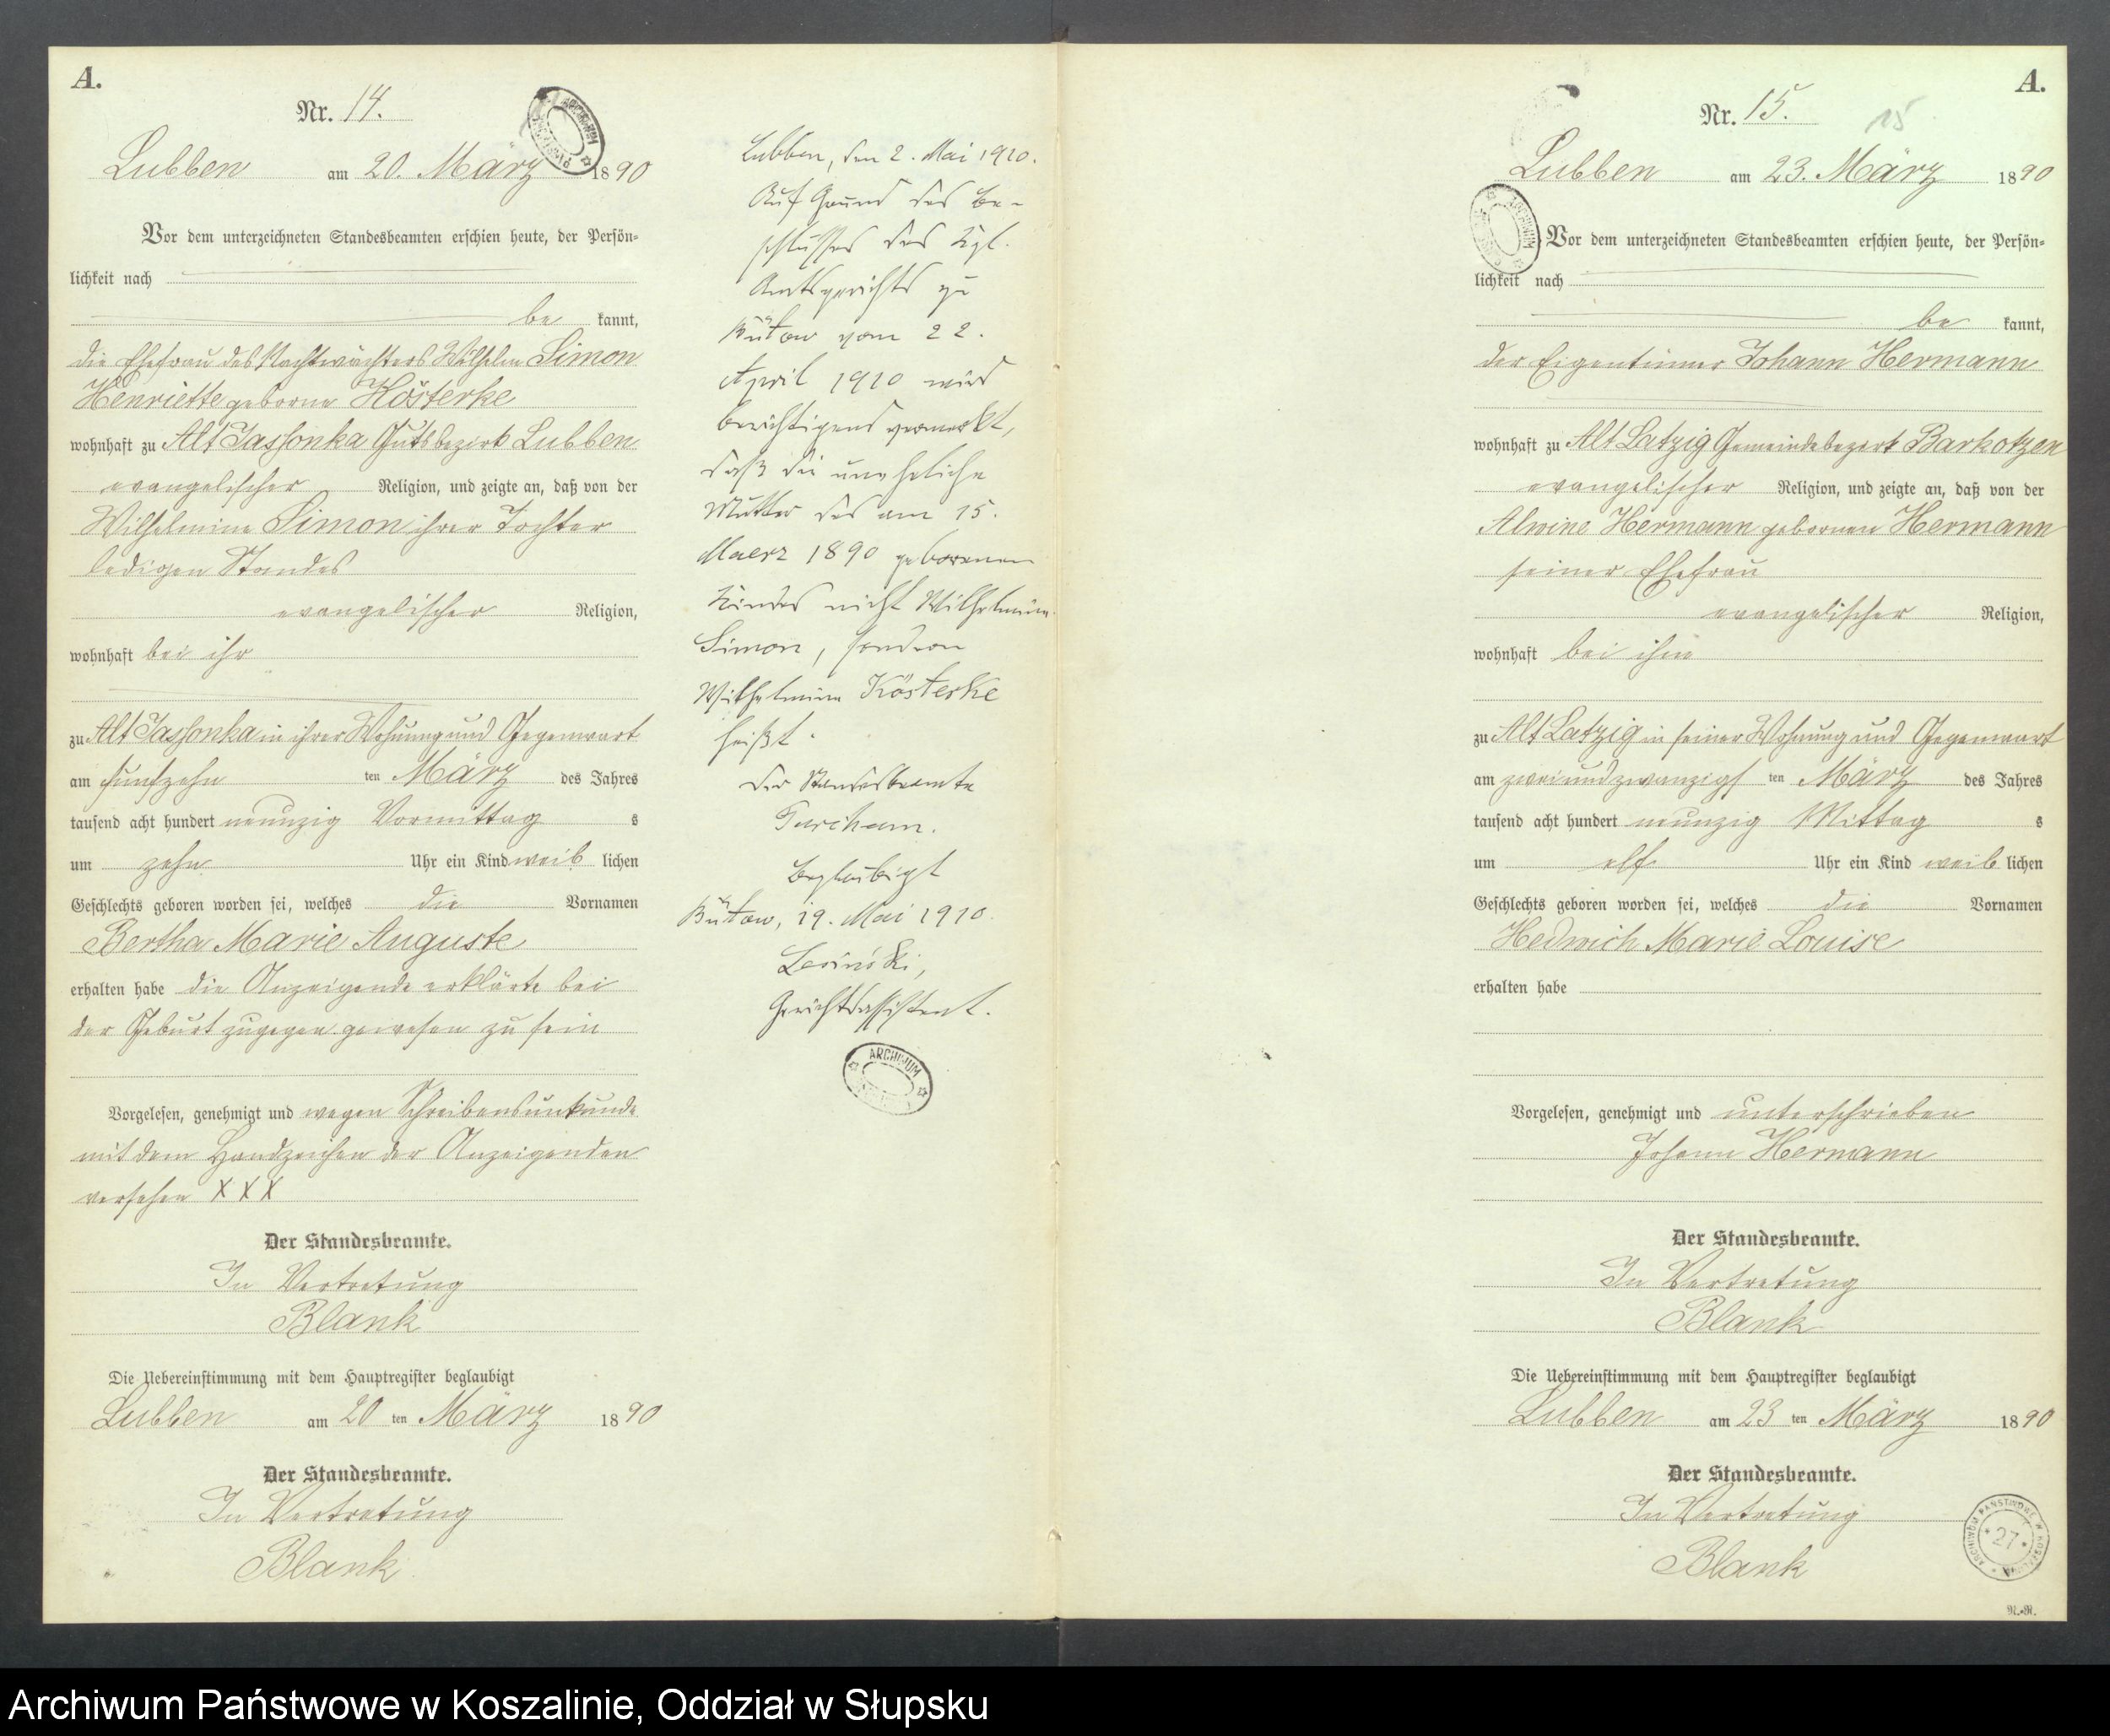 A.
Nr. 14.
Lubben am 20. März 1890
Vor dem unterzeichneten Standesbeamten erschien heute, der Persön-
lichkeit nach
be kannt,
die Ehefrau des Nachtwächters Wilhelm Simon
Henriette geborne Kösterke
wohnhaft zu Alt Jassonka Gutsbezirk Lubben
evangelischer Religion, und zeigte an, daß von der
Wilhelmine Simon ihrer Tochter
ledigen Standes
evangelischer Religion,
wohnhaft bei ihr
zu Alt Jassonka in ihrer Wohnung und Gegenwart
am fünfzehn ten März des Jahres
tausend acht hundert neunzig Vormittag s
um zehn Uhr ein Kind weib lichen
Geschlechts geboren worden sei, welches die Vornamen
Bertha Marie Auguste
erhalten habe die Anzeigende erklärte bei
der Geburt zugegen gewesen zu sein
Vorgelesen, genehmigt und wegen Schreibensunkunde
mit dem Handzeichen der Anzeigenden
versehen X X X
Der Standesbeamte.
In Vertretung
Blank
Die Uebereinstimmung mit dem Hauptregister beglaubigt
Lubben am 20 ten März 1890
Der Standesbeamte.
In Vertretung
Blank
Lubben, den 2. Mai 1910.
Auf Grund des Be-
schlusses des Kgl.
Amtsgerichts zu
Bütow vom 22.
April 1910 wird
berichtigend vermerkt,
daß die uneheliche
Mutter des am 15.
Maerz 1890 geborenen
Kindes nicht Wilhelmine
Simon, sondern
Wilhelmine Kösterke
heißt.
Der Standesbeamte
Beglaubigt
Bütow, 19. Mai 1910.
Gerichtsassistent.
ARCHIWUM
A.
Nr. 15.
15
Lubben am 23. März 1890
Vor dem unterzeichneten Standesbeamten erschien heute, der Persön-
lichkeit nach
be kannt,
der Eigentümer Johann Hermann
wohnhaft zu Alt Latzig Gemeindebezirk Barkotzen
evangelischer Religion, und zeigte an, daß von der
Alwine Hermann gebornen Hermann
seiner Ehefrau
evangelischer Religion,
wohnhaft bei ihm
zu Alt Latzig in seiner Wohnung und Gegenwart
am zweiundzwanzigs ten März des Jahres
tausend acht hundert neunzig Mittag s
um elf Uhr ein Kind weib lichen
Geschlechts geboren worden sei, welches die Vornamen
Hedwich Marie Louise
erhalten habe
Vorgelesen, genehmigt und unterschrieben
Johann Hermann
Der Standesbeamte.
In Vertretung
Blank
Die Uebereinstimmung mit dem Hauptregister beglaubigt
Lubben am 23 ten März 1890
Der Standesbeamte.
In Vertretung
Blank
ARCHIWUM PAŃSTWOWE W KOSZALINIE
27
N.-N.
Archiwum Państwowe w Koszalinie, Oddział w Słupsku